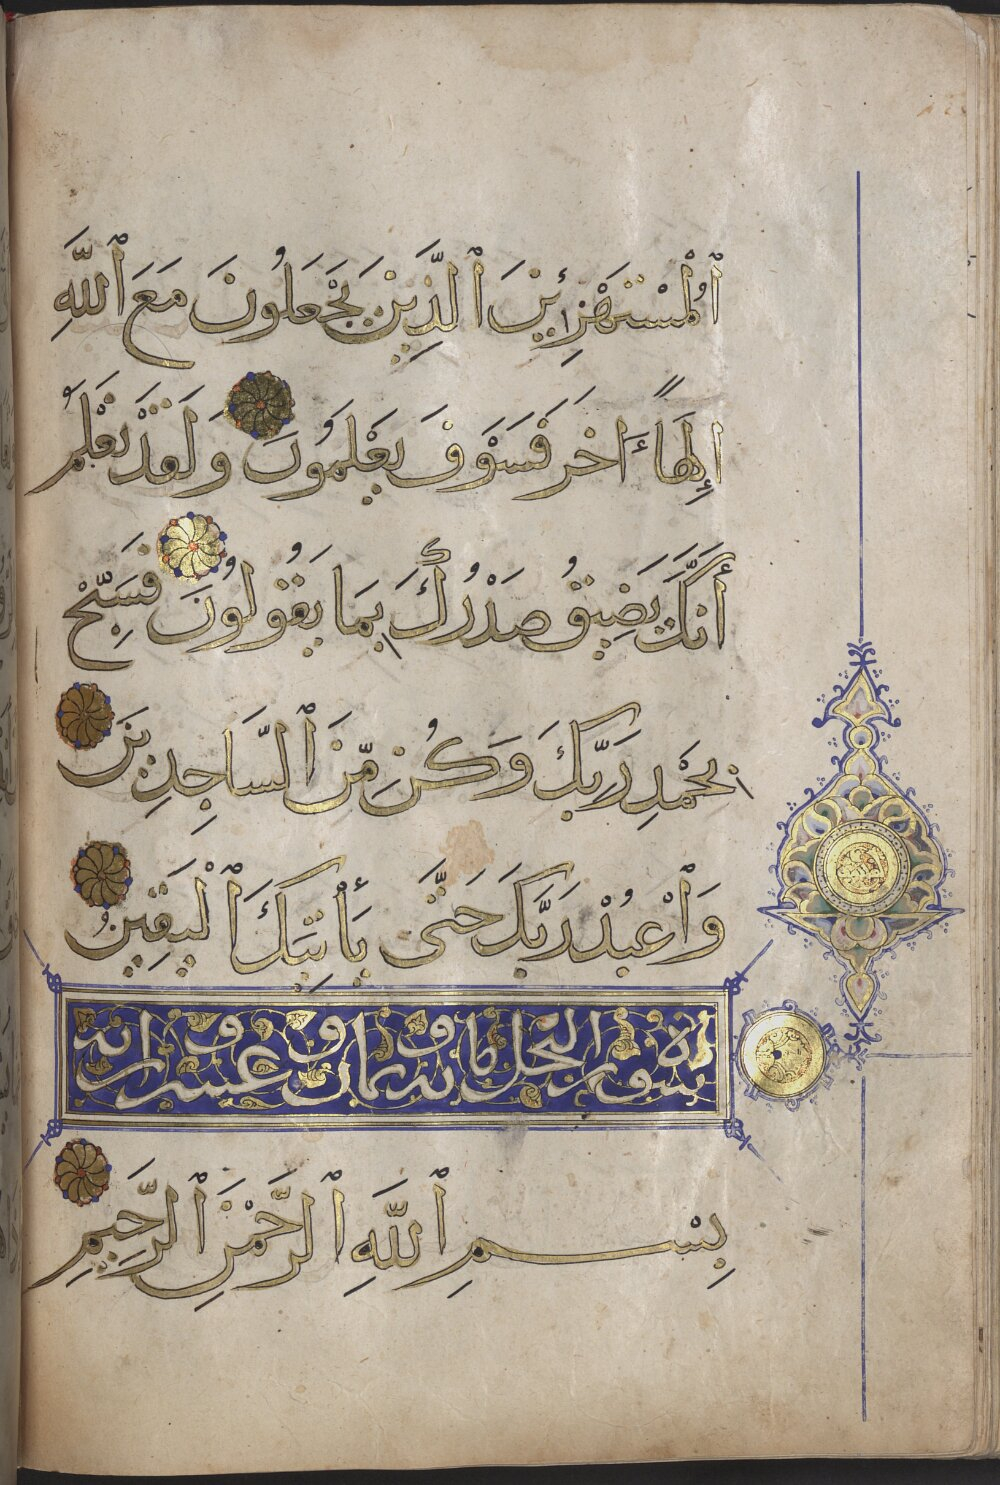 ٱلْمُسْتَهْزِءِينَ ٱلَّذِينَ يَجْعَلُونَ مَعَ ٱللَّهِ
إِلَٰهًا ءَاخَرَ فَسَوْفَ يَعْلَمُونَ وَلَقَدْ نَعْلَمُ
أَنَّكَ يَضِيقُ صَدْرُكَ بِمَا يَقُولُونَ فَسَبِّحْ
بِحَمْدِ رَبِّكَ وَكُن مِّنَ ٱلسَّاجِدِينَ
وَٱعْبُدْ رَبَّكَ حَتَّى يَأْتِيَكَ ٱلْيَقِينُ
سورة النحل مائة وثمان وعشرون آية
بِسْمِ ٱللَّهِ ٱلرَّحْمَٰنِ ٱلرَّحِيمِ